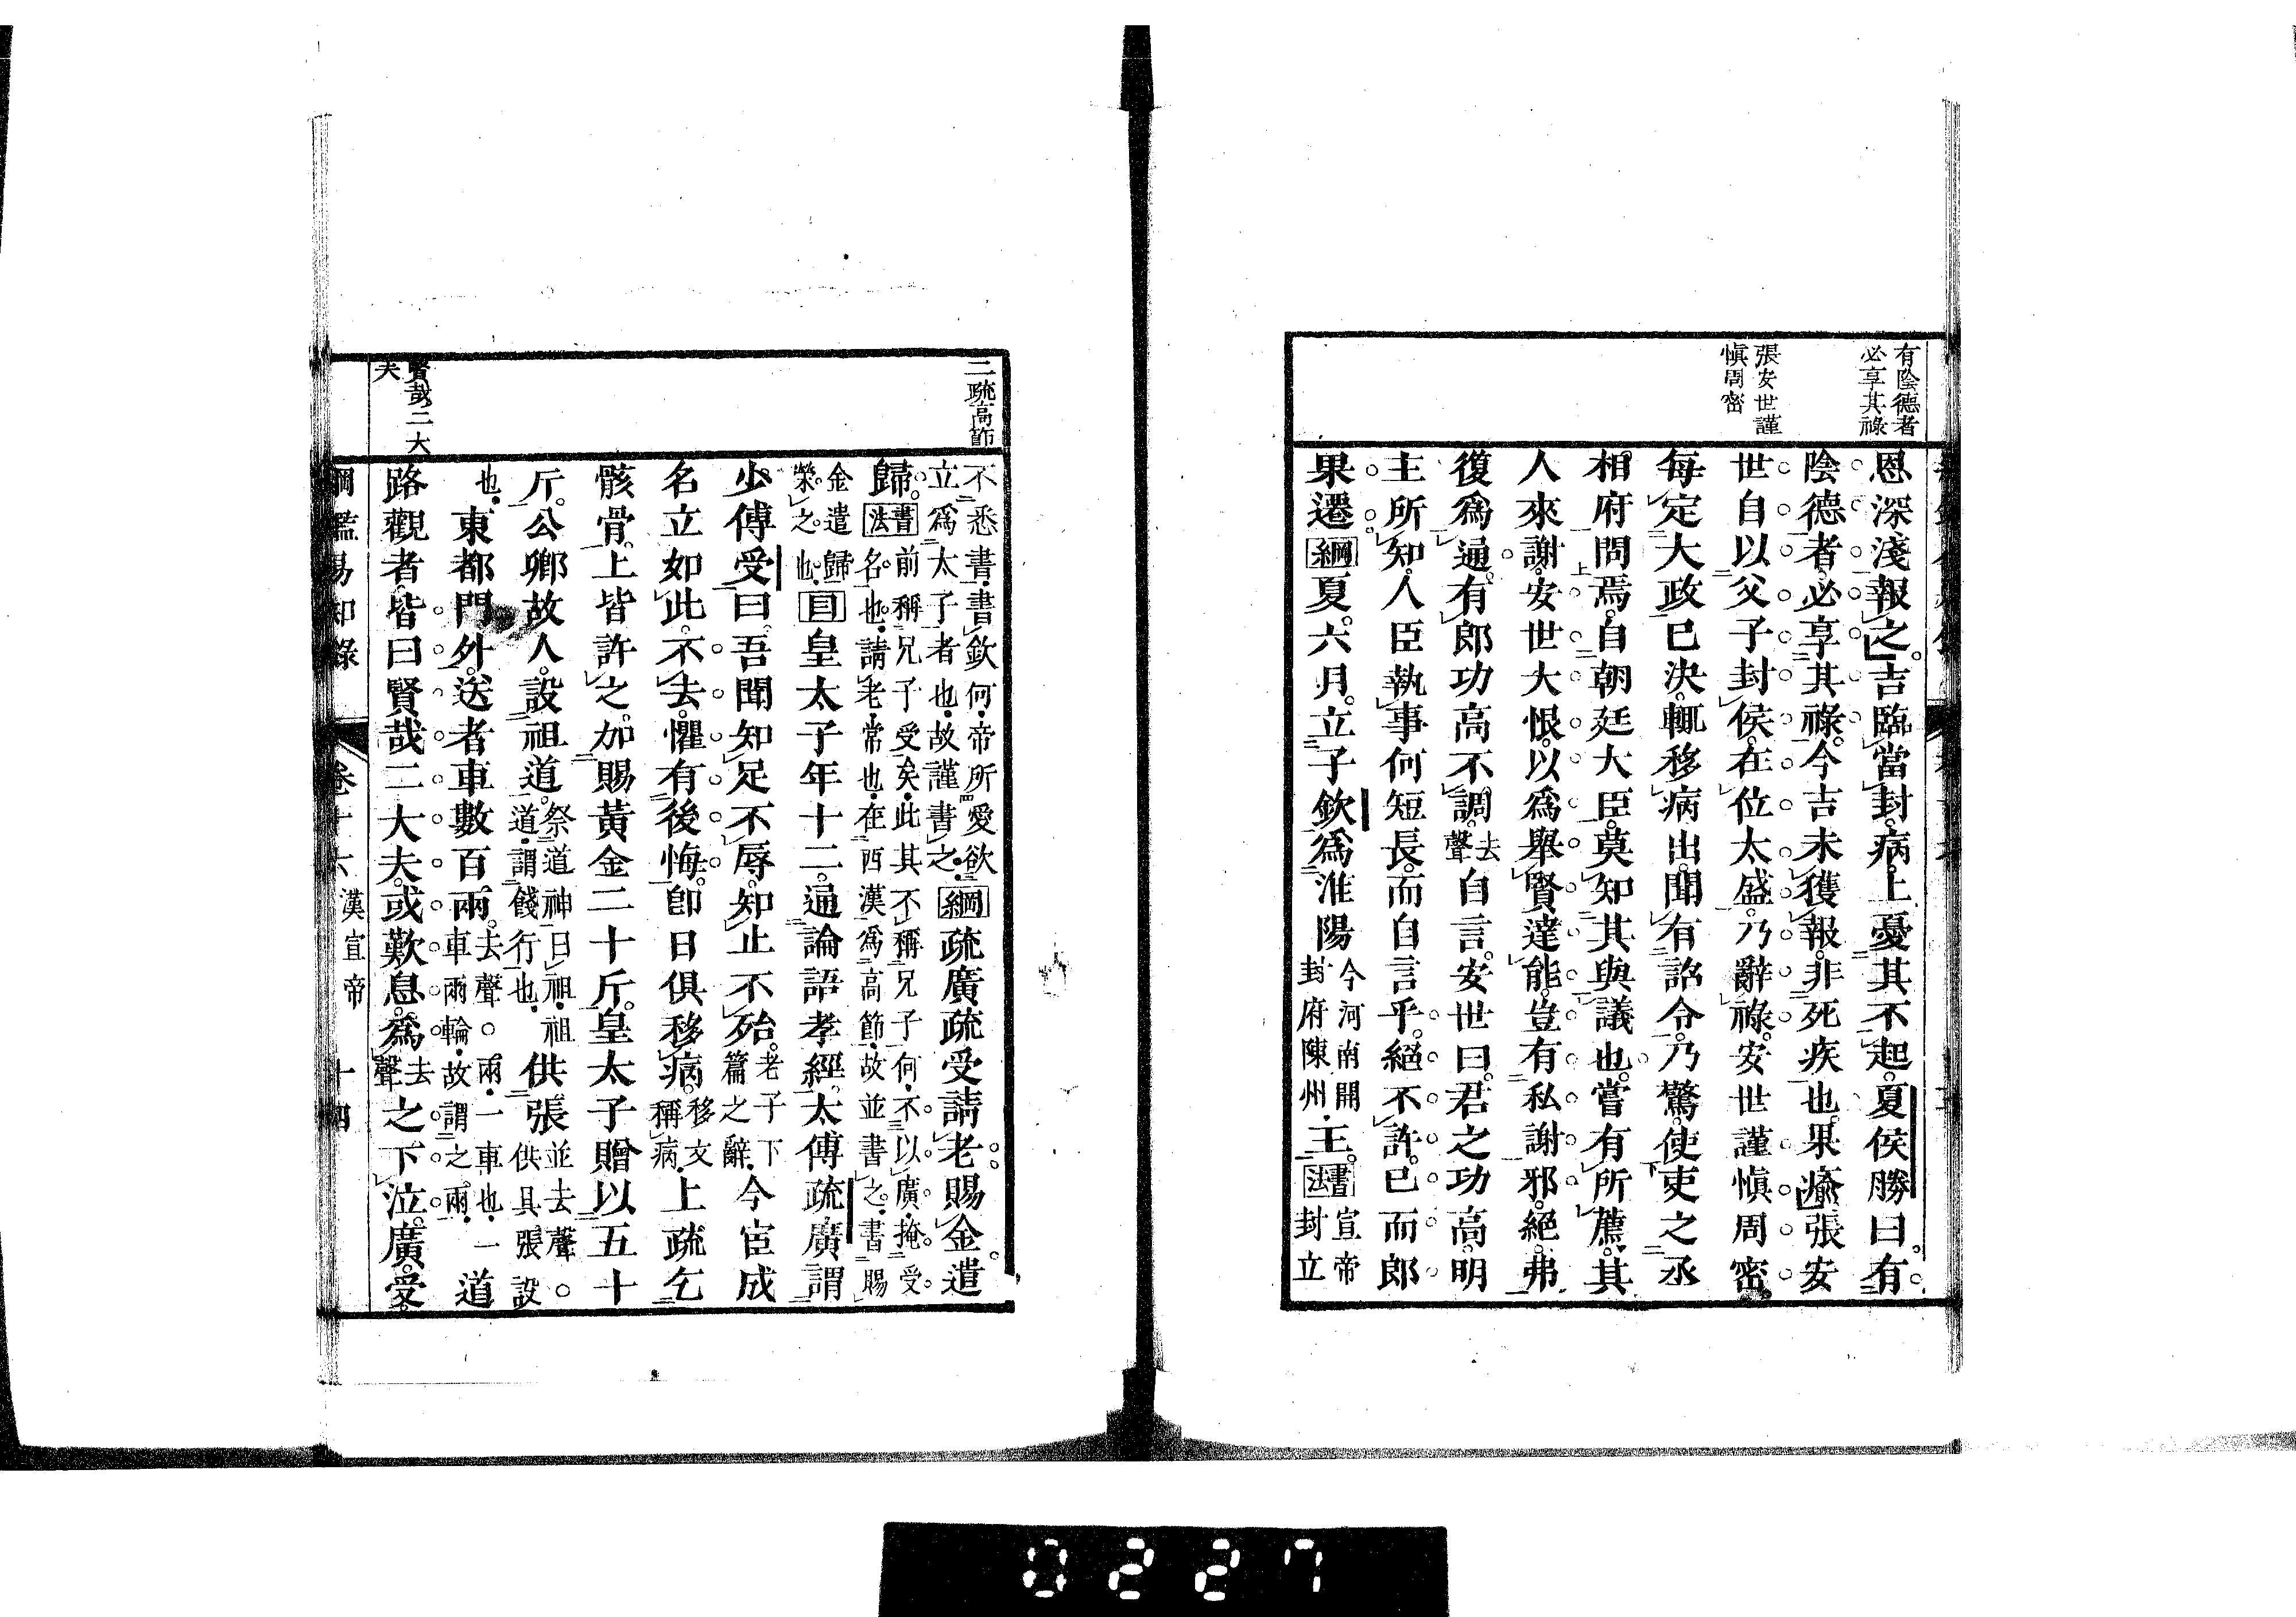 有陰德者
必享其祿
張安世謹
愼周密
恩深淺報之吉臨當封病上憂其不起夏侯勝曰有
陰德者必享其祿今吉未獲報非死疾也果瘉張安
世自以父子封侯在位太盛乃辭祿安世謹愼周密
每定大政已決輒移病出聞有詔令乃驚使吏之丞
相府問焉自朝廷大臣莫知其與議也嘗有所薦其
人來謝安世大恨以爲舉賢達能豈有私謝邪絕弗
復爲通有郎功高不調去聲自言安世曰君之功高明
主所知人臣執事何短長而自言乎絕不許已而郎
果遷綱夏六月立子欽爲淮陽今河南開封府陳州王書法宣帝封立
二疏高節
賢哉二大
夫
不悉書書欽何帝所愛欲立爲太子者也故謹書之綱疏廣疏受請老賜金遣
歸書法前稱兄子受矣此其不稱兄子何不以廣掩受名也請老常也在西漢爲高節故並書之書賜
金遣歸榮之也目皇太子年十二通論語孝經太傅疏廣謂
少傅受曰吾聞知足不辱知止不殆老子下篇之辭今宦成
名立如此不去懼有後悔卽日俱移病移文稱病上疏乞
骸骨上皆許之加賜黃金二十斤皇太子贈以五十
斤公卿故人設祖道祭道神曰祖祖道謂餞行也供張並去聲供具張設
也東都門外送者車數百兩去聲兩一車也一車兩輪故謂之兩道
路觀者皆曰賢哉二大夫或歎息爲去聲之下泣廣受
綱鑑易知錄 卷十六 漢宣帝 十四
0227